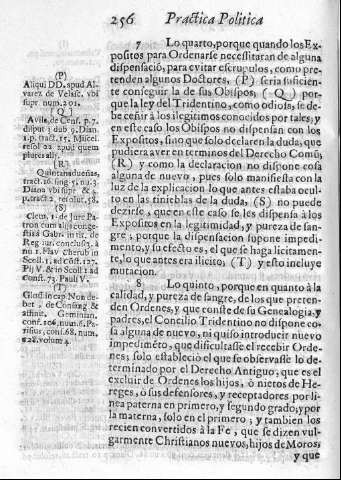 256 Practica Politica
7 Lo quarto, porque quando los Ex-
positos para Ordenarse necessitaran de alguna
dispensació, para evitar escrupulos, como pre-
tenden algunos Doctores, (P) seria suficiente
conseguir la de sus Obispos, (Q) por-
que la ley del Tridentino, como odiosa, se de-
be ceñir à los ilegitimos conocidos por tales; y
en este caso los Obispos no dispensan con los
Expositos, sino que solo declaren la duda, que
pudiera aver en terminos del Derecho Comũ,
(R) y como la declaracion no dispone cosa
alguna de nuevo, pues solo manifiesta con la
luz de la explicacion lo que antes estaba ocul-
to en las tinieblas de la duda, (S) no puede
dezirse, que en este caso se les dispensa à los
Expositos en la legitimidad, y pureza de san-
gre; porque la dispensacion supone impedi-
mento, y su efecto es, el que se haga licitamen-
te, lo que antes era ilicito, (T) y esto incluye
mutacion.
8 Lo quinto, porque en quanto à la
calidad, y pureza de sangre, de los que preten-
den Ordenes, y que conste de su Genealogia, y
padres, el Concilio Tridentino no dispone co-
sa alguna de nuevo, ni quiso introducir nuevo
impedimẽto, que dificultasse el recebir Orde-
nes; solo estableciò el que se observasse lo de-
terminado por el Derecho Antiguo, que es el
excluir de Ordenes los hijos, ò nietos de He-
reges, ò sus defensores, y receptadores por li-
nea paterna en primero, y segundo grado; y por
la materna, solo en el primero; y tambien los
recien convertidos à la Fè, que se dizen vul-
garmente Christianos nuevos, hijos de Moros,
y que
(P)
Aliqui DD. apud Al-
varez de Velasc. vbi
supr. num. 201.
(Q)
Avila, de Cens. p. 7.
disput. 3 dub. 9. Dian.
1. p. tract. 15. Miscel.
resol 22 apud quem
plures alij.
(R)
Quintanadueñas,
tract. 16. sing. 5. nu. 3.
Diana vbi supr &
p. tract 2. resolut. 58.
(S)
Clem. 1. de Iure Patron
cum alijs conge-
stis à Gabr. in tit. de
Reg. iur. conclus. 3. à
nu 1. Flav Cherub in
Scoll. 1 ad cost. 127.
Pij V. & in Scoll 2 ad
Const. 73. Pauli V.
(T)
Glos in cap. Non de-
bet, de Consang &
affinit, Geminian.
conf. 106. num. 6. Pa-
risius, conf. 68. num.
22. volum 4.